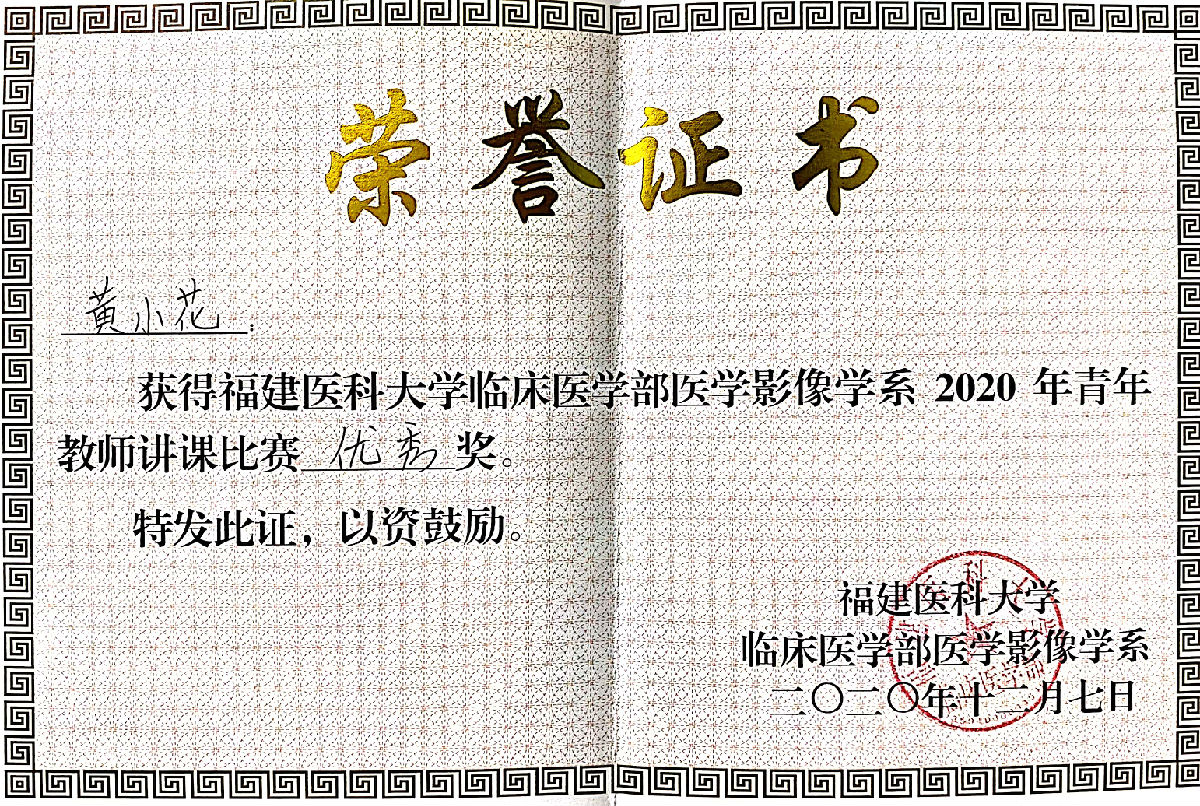 荣誉证书
黄小花：
获得福建医科大学临床医学部医学影像学系 2020 年青年
教师讲课比赛优秀奖。
特发此证，以资鼓励。
福建医科大学
临床医学部医学影像学系
二〇二〇年十二月七日